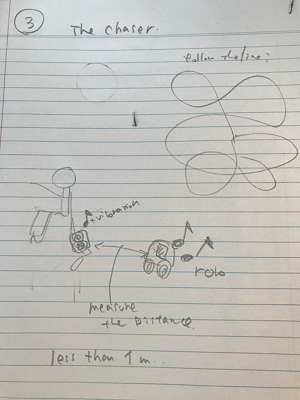 3
The chaser.
follow the line:
+vibration
robo
measure
the Distance.
less than 1 m..